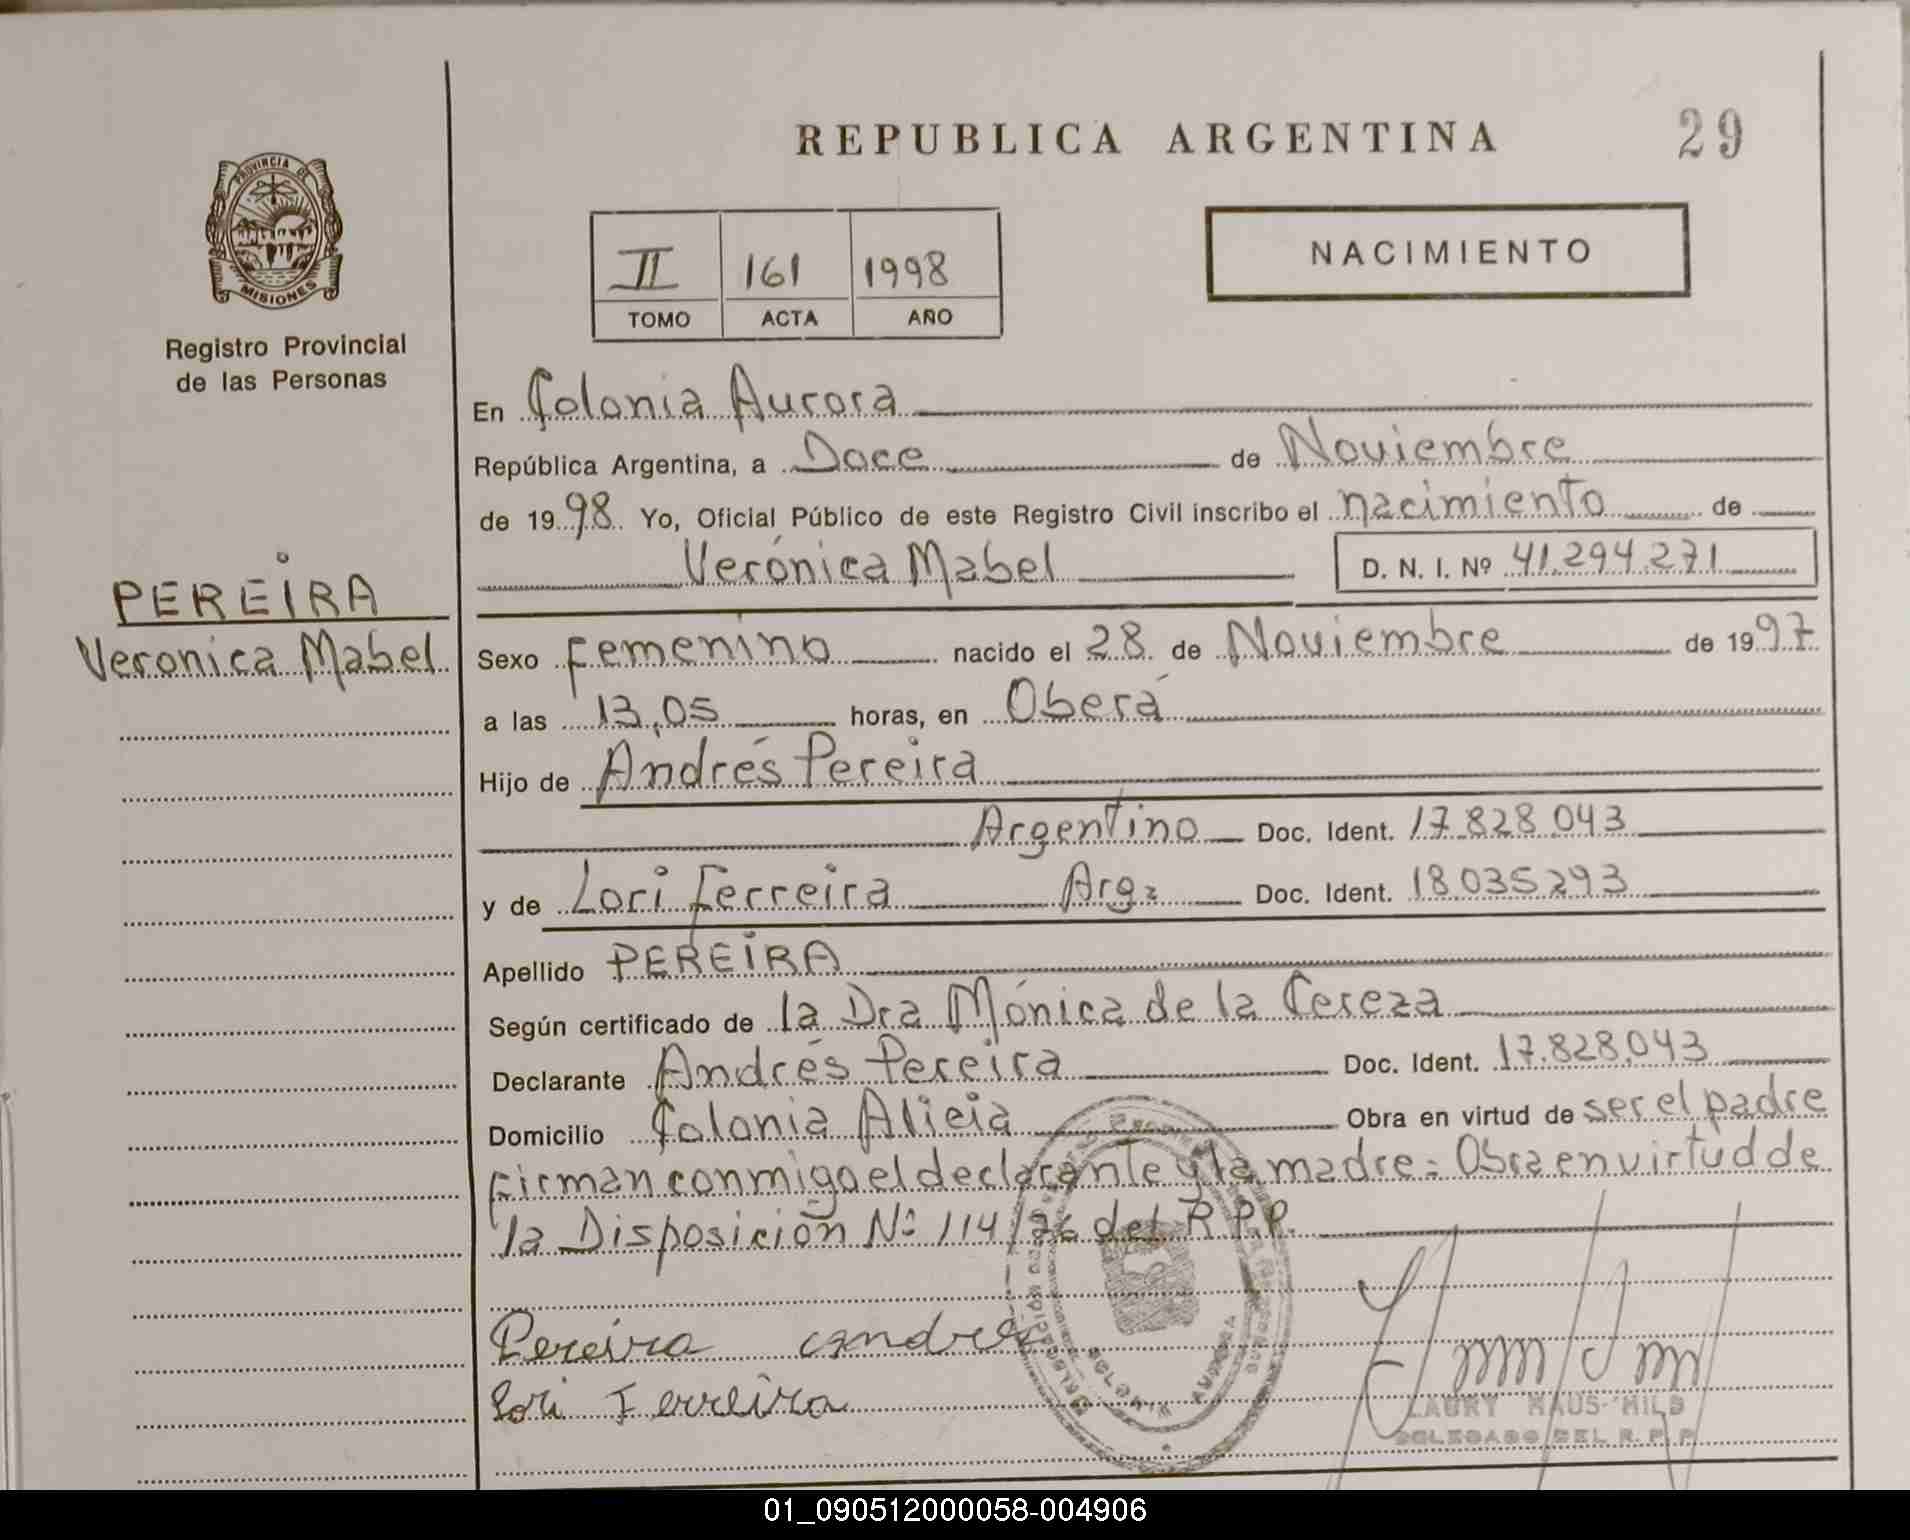 REPUBLICA ARGENTINA
29
PROVINCIA DE
MISIONES
Registro Provincial
de las Personas
II 161 1998
TOMO ACTA AÑO
NACIMIENTO
En Colonia Aurora
República Argentina, a Doce de Noviembre
de 1998 Yo, Oficial Público de este Registro Civil inscribo el nacimiento de
Verónica Mabel D. N. I. Nº 41.294.271
PEREIRA
Veronica Mabel
Sexo femenino nacido el 28 de Noviembre de 1997
a las 13,05 horas, en Oberá
Hijo de Andrés Pereira
Argentino Doc. Ident. 17.828.043
y de Lori Ferreira Arg: Doc. Ident. 18.035.293
Apellido PEREIRA
Según certificado de la Dra Mónica de la Cereza
Declarante Andrés Pereira Doc. Ident. 17.828.043
Domicilio Colonia Alicia Obra en virtud de ser el padre
firman conmigo el declarante y la madre = Obra en virtud de
la Disposición Nº 114/76 del R.P.P.
Pereira andres
Lori Ferreira
LAURY HAUS-HILD
DELEGADO DEL R.P.P.
01_090512000058-004906